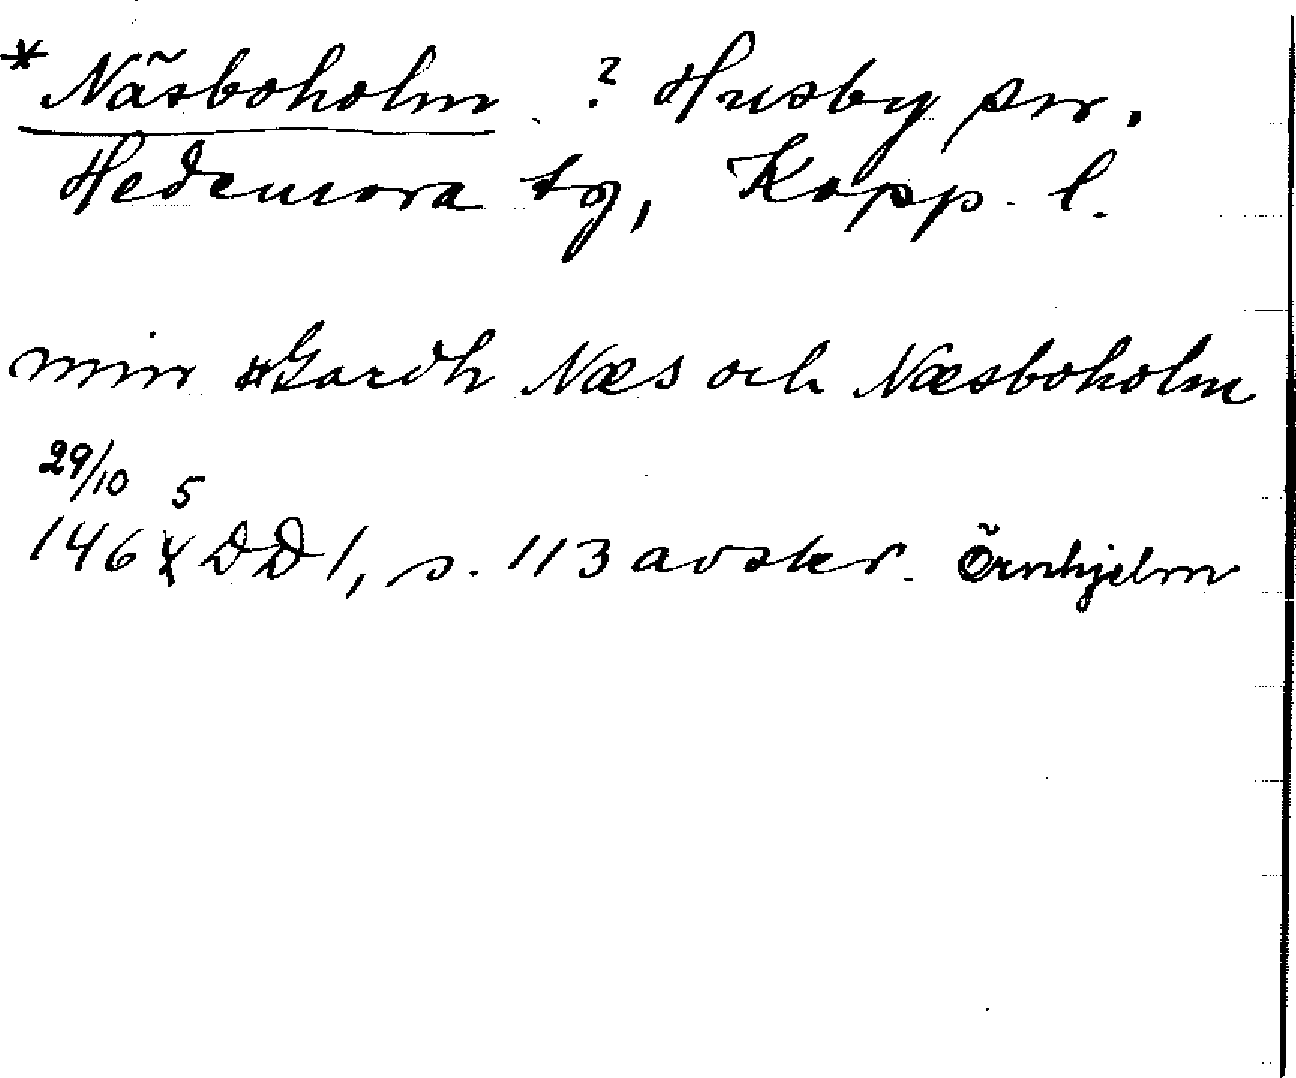 * Näsboholm ? Husby sn.
Hedemora tg, Kopp. l.
min Gardh Næs och Næsboholm
29/10 5
146 DD 1, s. 113 avskr. Örnhjelm